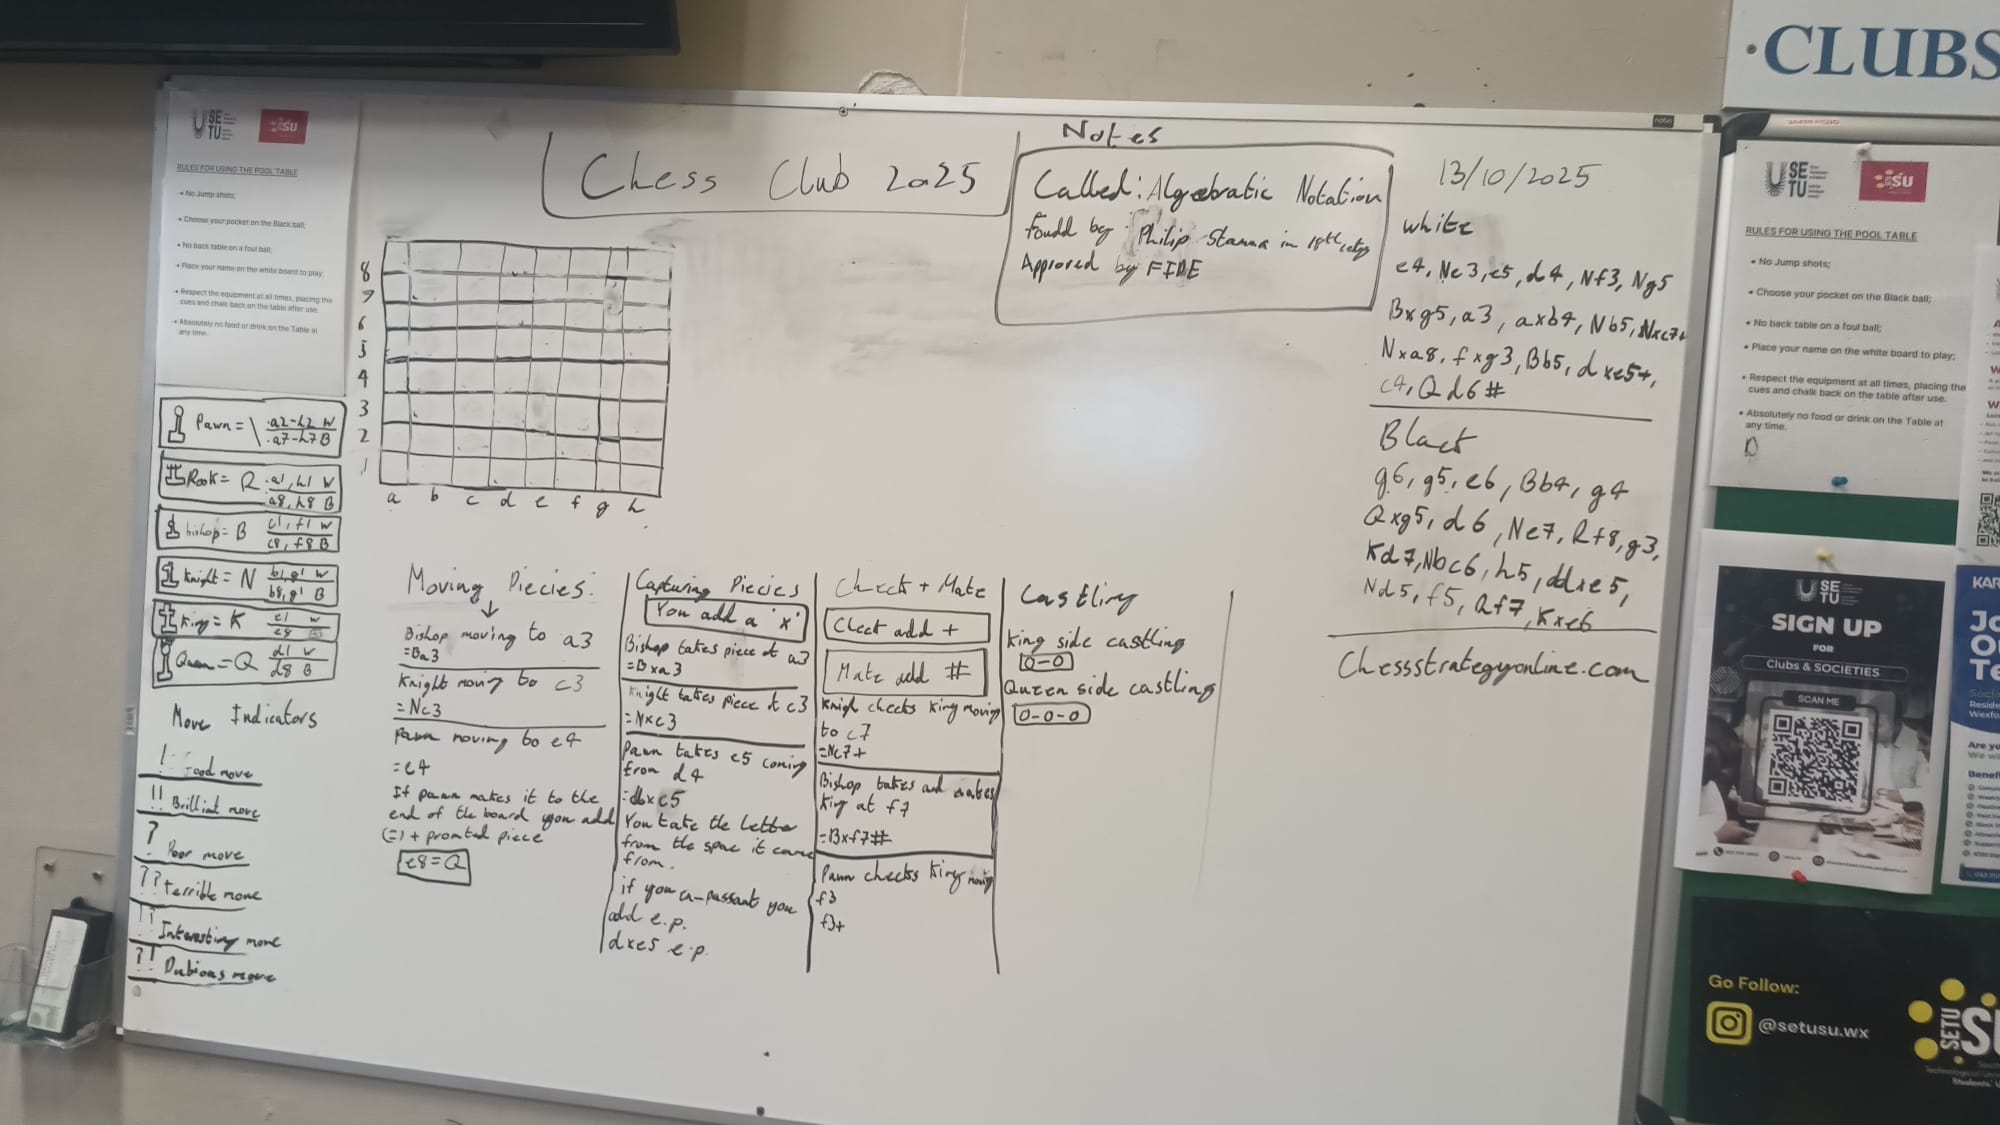 CLUBS
SETU
SU
RULES FOR USING THE POOL TABLE
• No Jump shots;
• Choose your pocket on the Black ball;
• No back table on a foul ball;
• Place your name on the white board to play;
• Respect the equipment at all times, placing the
cues and chalk back on the table after use.
• Absolutely no food or drink on the Table at
any time.
Chess Club 2025
Notes
Called: Algebratic Notation
Foudd by Philip Stamma in 18th
Approved by FIDE
8
7
6
5
4
3
2
1
a b c d e f g h
Pawn = \ a2-h2 W
a7-h7 B
Rook = R a1, h1 W
a8, h8 B
bishop = B c1, f1 W
c8, f8 B
Knight = N b1, g1 W
b8, g1 B
King = K e1 W
e8 B
Queen = Q d1 W
d8 B
Move Indicators
! Good move
!! Brilliant move
? Poor move
?? terrible move
Interesting move
?! Dubious move
Moving Piecies:
Bishop moving to a3
=Ba3
Knight moving to c3
= Nc3
Pawn moving to e4
= e4
If pawn makes it to the
end of the board you add
(=) + promted piece
e8=Q
Capturing Piecies
You add a 'x'
Bishop takes piece at a3
=Bxa3
Knight takes piece at c3
=Nxc3
Pawn takes e5 coming
from d4
You take the letter
from the space it came
from.
if you en-passant you
add e.p.
dxe5 e.p.
Check + Mate
Check add +
Mate add #
Knigh checks King moving
to c7
=Nc7+
Bishop takes and mates
King at f7
=Bxf7#
Pawn checks King moving
f3
f3+
Castling
King side castling
0-0
Queen side castling
0-0-0
13/10/2025
white
e4, Nc3, e5, d4, Nf3, Ng5
Bxg5, a3, axb4, Nb5, Nxc7+
Nxa8, fxg3, Bb5, dxe5+,
c4, Qd6#
Black
g6, g5, e6, Bb4, g4
Qxg5, d6, Ne7, Rf8, g3,
Kd7, Nbc6, h5, dxe5,
Nd5, f5, Rf7, Kxe6
Chessstrategyonline.com
SETU
SU
RULES FOR USING THE POOL TABLE
• No Jump shots;
• Choose your pocket on the Black ball;
• No back table on a foul ball;
• Place your name on the white board to play;
• Respect the equipment at all times, placing the
cues and chalk back on the table after use.
• Absolutely no food or drink on the Table at
any time.
SETU
SIGN UP
FOR
Clubs & SOCIETIES
SCAN ME
KAR
Go Follow:
@setusu.wx
SETU